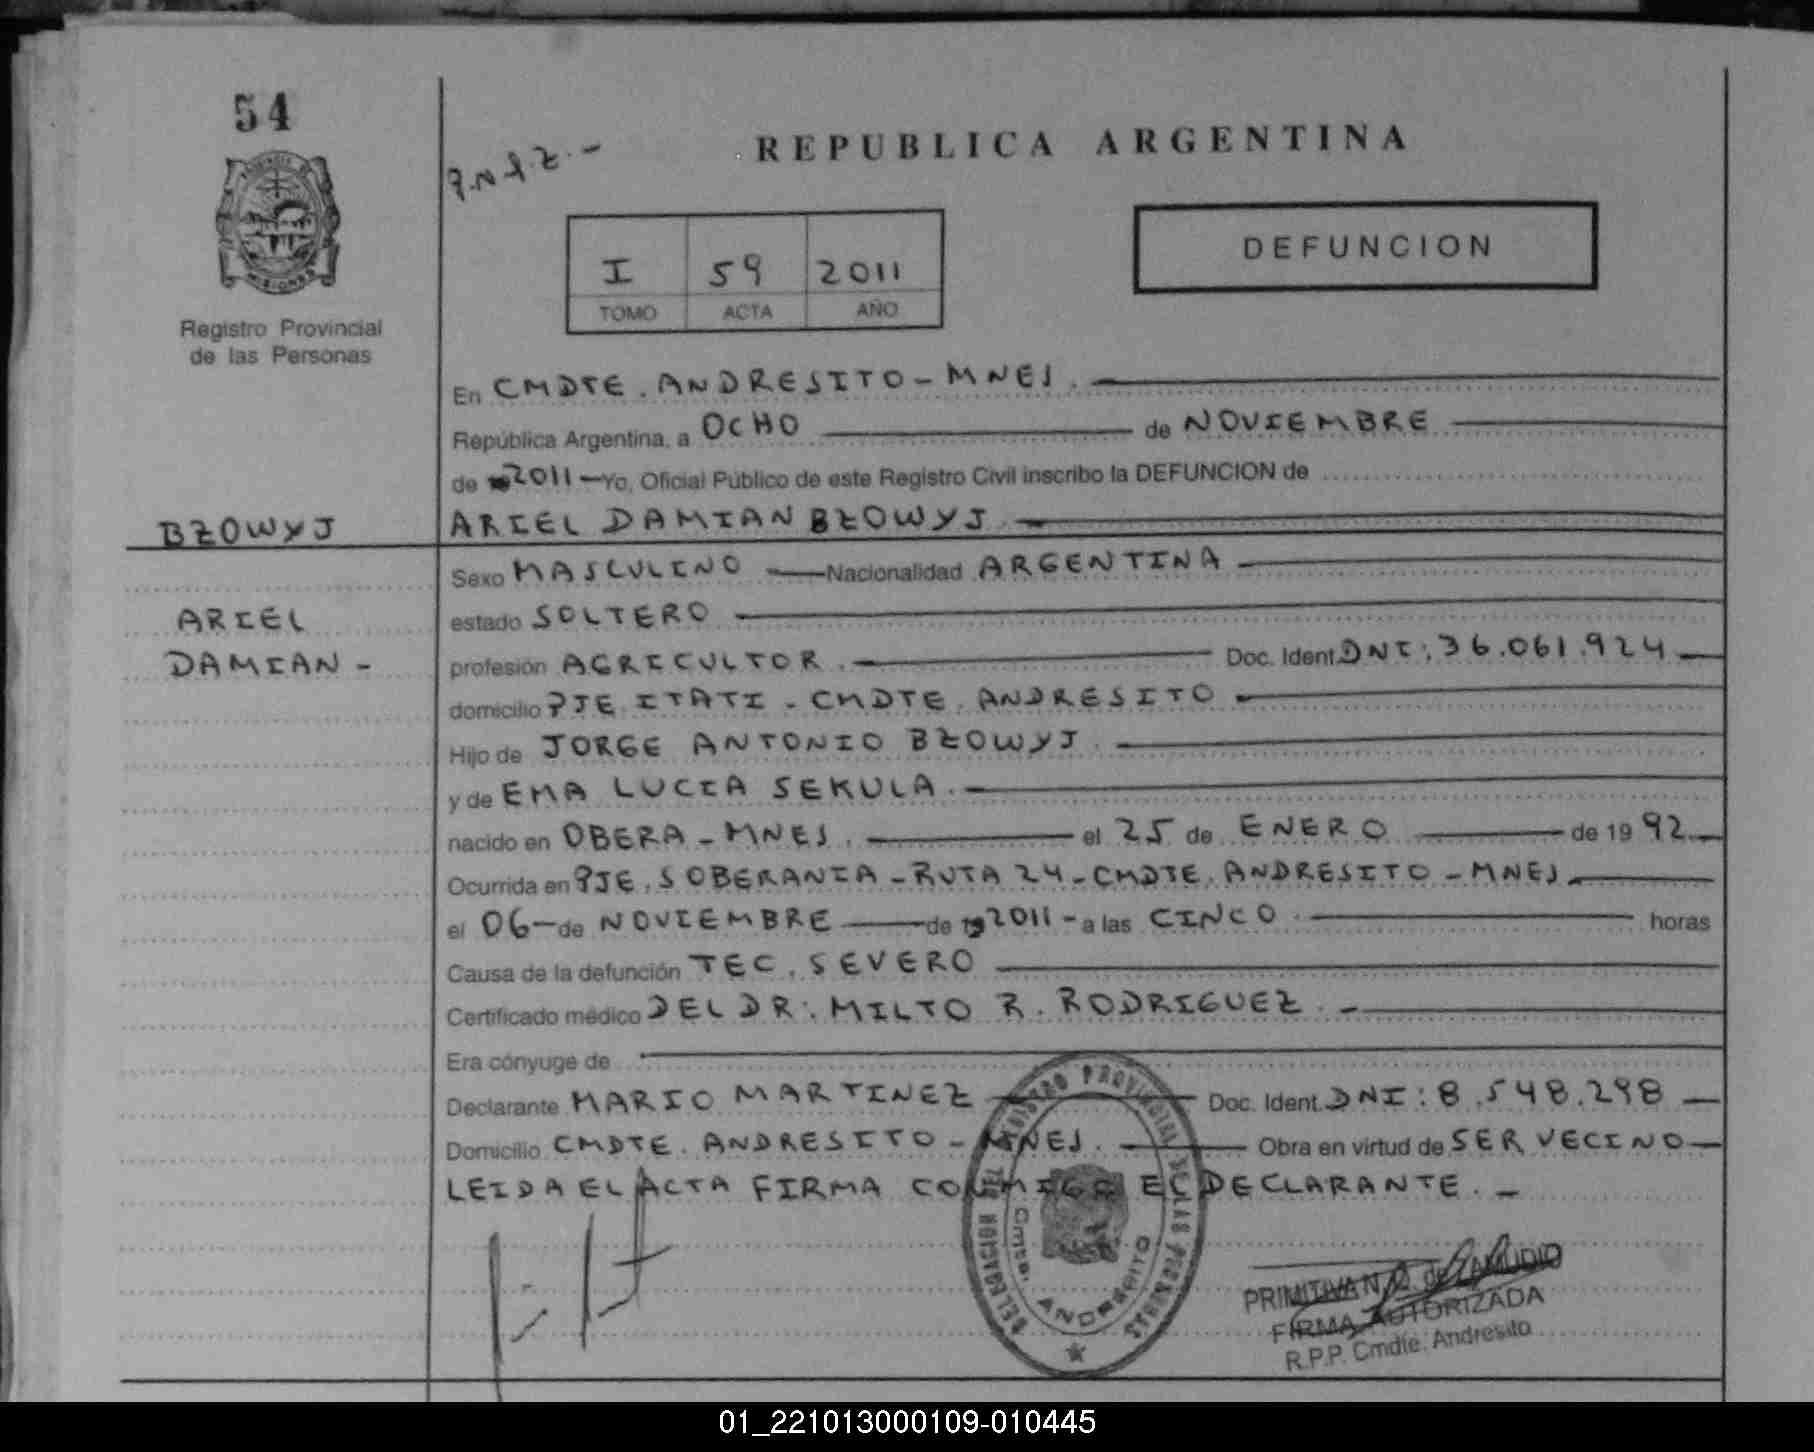 54
REPUBLICA ARGENTINA
DEFUNCION
I 59 2011
TOMO ACTA AÑO
MISIONES
Registro Provincial
de las Personas
En CMDTE. ANDRESITO - MNES.
República Argentina, a OCHO de NOVIEMBRE
de 2011 - Yo, Oficial Público de este Registro Civil inscribo la DEFUNCION de
BZOWYJ
ARIEL DAMIAN BZOWYJ
Sexo MASCULINO Nacionalidad ARGENTINA
ARIEL
estado SOLTERO
DAMIAN -
profesión AGRICULTOR. Doc. Ident. DNI: 36.061.924
domicilio PJE ITATI - CMDTE. ANDRESITO
Hijo de JORGE ANTONIO BZOWYJ.
y de EMA LUCIA SEKULA.
nacido en OBERA - MNES. el 25 de ENERO de 19 92
Ocurrida en PJE. SOBERANIA - RUTA 24 - CMDTE. ANDRESITO - MNES.
el 06 - de NOVIEMBRE de 19 2011 - a las CINCO. horas
Causa de la defunción TEC. SEVERO
Certificado médico DEL DR: MILTO R. RODRIGUEZ. -
Era cónyuge de
Declarante MARIO MARTINEZ Doc. Ident. DNI: 8.548.298
Domicilio CMDTE. ANDRESITO - MNES. Obra en virtud de SER VECINO
LEIDA EL ACTA FIRMA CONMIGO EL DECLARANTE. -
REGISTRO PROVINCIAL DE LAS PERSONAS
DELEGACION
Cmte. ANDRESITO
PRIMITIVA N. Q. de ZAMUDIO
FIRMA AUTORIZADA
R.P.P. Cmdte. Andresito
01_221013000109-010445